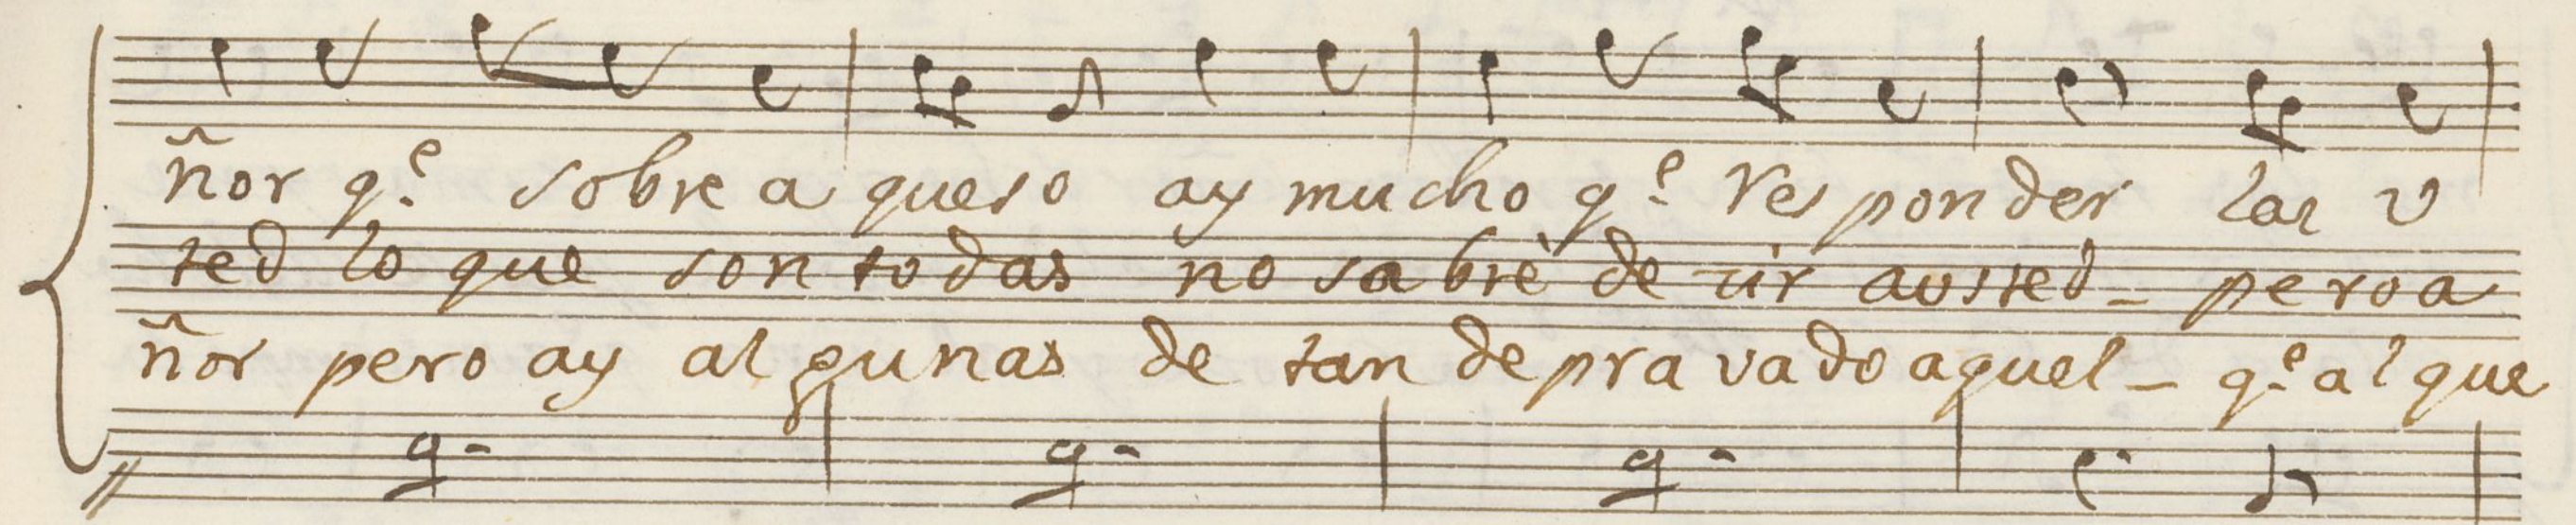 ñor q.e sobre a queso ay mucho q.e responder las v
ted lo que son todas no sabrè decir austed_ pero a
ñor pero ay algunas de tan depravado aquel_ q.e al que